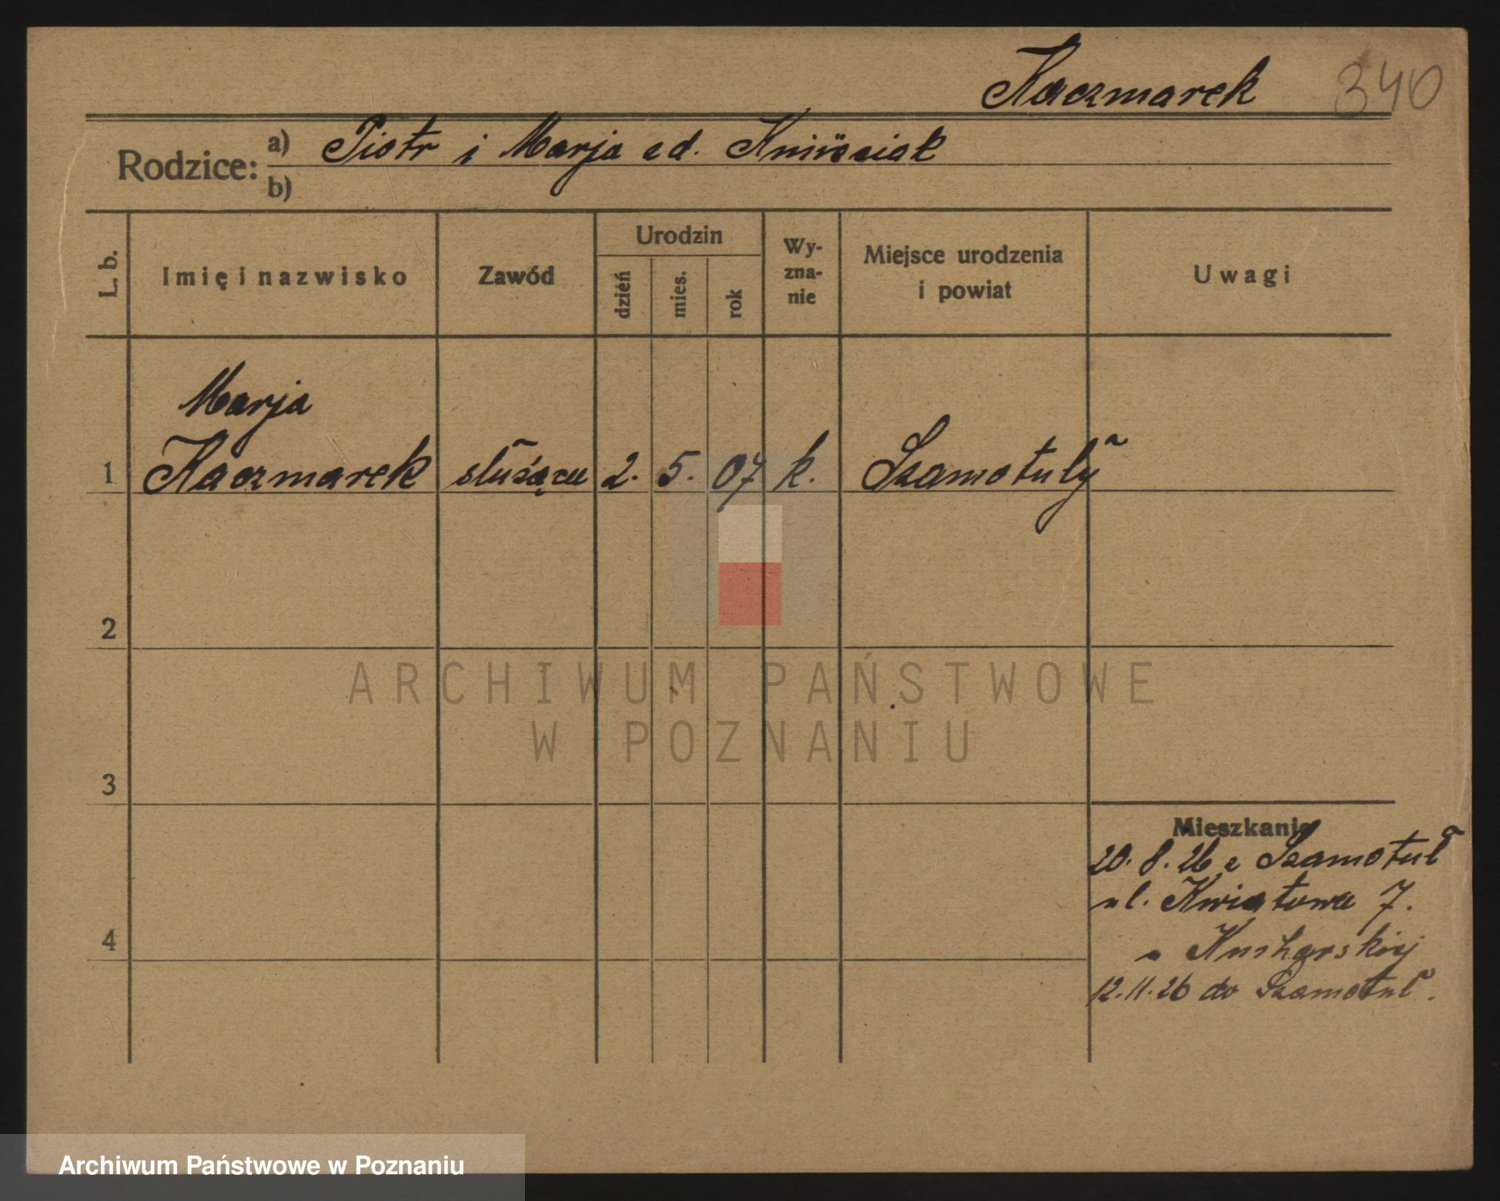 Kaczmarek 340
Rodzice: a) Piotr i Marja z d.
b)
L. b.
Imię i nazwisko
Zawód
Urodzin
dzień
mies.
rok
Wy-
zna-
nie
Miejsce urodzenia
i powiat
Uwagi
Marja
1 Kaczmarek służąca 2. 5. 07 k. Szamotuły
2
3
4
Mieszkanie
20. 8. 26 z Szamotuł
ul. Kwiatowa 7.
u Kucharskiej
12. 11. 26 do Szamotuł.
ARCHIWUM PAŃSTWOWE
W POZNANIU
Archiwum Państwowe w Poznaniu